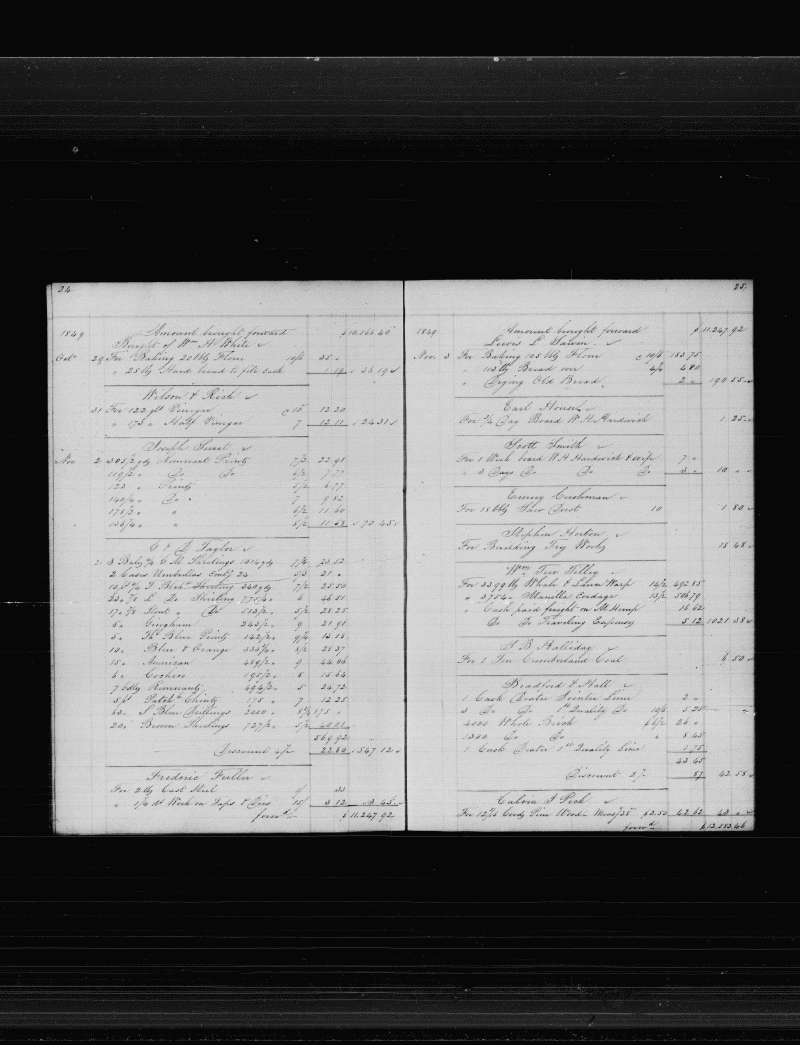 24
1849 Amount brought forward $10,566.40
Bought of Wm H. White
Octr 29 For Baking 20 bbls Flour 10/6 35 "
" 25 lbs Hard bread to fill cask 1 19 36 19
Wilson & Rich
31 For 122 gls Vinegar 10 12 20
" 173 " Half Vinegar 7 12 11 24 31
Joseph
Nov 2 305/2 yds Remnant Prints 7/2 22.91
119/2 " Do Do 6/2 7.77
123 " Prints 5/2 6.77
140/4 " Do " 7 9 82
178/2 " " 6/2 11 60
136/4 " " 8/2 11 58 70 45
C & D Taylor
2 3 Bales 4/4 C. M. Sheetings 1014 yds 7/4 73.52
2 Cases Umbrellas contg 24 21 "
Sheeting 340 yds 7/2 25.50
L. Do Shirting 775/4 " 6 46 51
Do 513/2 " 5/2 28 25
Gingham 243/2 " 9 21.91
5 " Blue Prints 142/2 " 9/4 13 18
10 " Blue & Orange 8/2 28 37
15 " American 489/2 " 9 44 06
6 " Cocheco 195/2 " 8 15.64
7 bdls Remnants 494/2 " 5 24.72
5 ps Patch Chintz 175 " 7 12 25
Blue Drillings 2000 " 175 "
20 " Brown Sheetings 727/2 " 5/2 40.01
569.92
Discount 4% 22 80 547 12
Frederic Fuller
For 2 lbs Cast Steel 33
" 1/4 d Work on Taps & Dies 15/ 3 12 3 45
forwd $11.247 92
25
1849 Amount brought forward $11.247.92
Lewis L.
Nov. 3 For Baking 105 bbls Flour 10/6 183.75
" 112 lb Bread over 4/2 4 80
" Drying Old Bread 2 " 190 55
Earl House
For 3/4 Day Board W. H. Hardwick 1 25
Scott Smith
For 1 Week board W. H. Hardwick & wife 7 "
" 3 Days Do Do Do 3 " 10 "
Emery Cushman
For 18 bbls Saw Dust 10 1 80
Stephen Horton
For Building Try Works 18 48
Wm Tew Jelley
For 3399 lbs Whale & Lance Warp 14/2 492.85
" 3754 " Manilla Cordage 13/2 506.79
" Cash paid freight on M. Hemp 16 62
Do Do Traveling Expenses 5 12 1021 38
S. B. Halliday
For 1 Ton Cumberland Coal 6 50
Bradford & Hall
1 Cask Dexter Lime 2 "
3 Do Do 1st Quality Do 10/6 5 25
4000 Whole Brick 26 "
1300 Do Do " 8 45
1 Cask Dexter 1st Quality Lime 1.75
43.45
Discount 2% 87 42 58
Calvin J Peck
For Cords Pine Wood 2.50 42 62
forwd $12,583.46